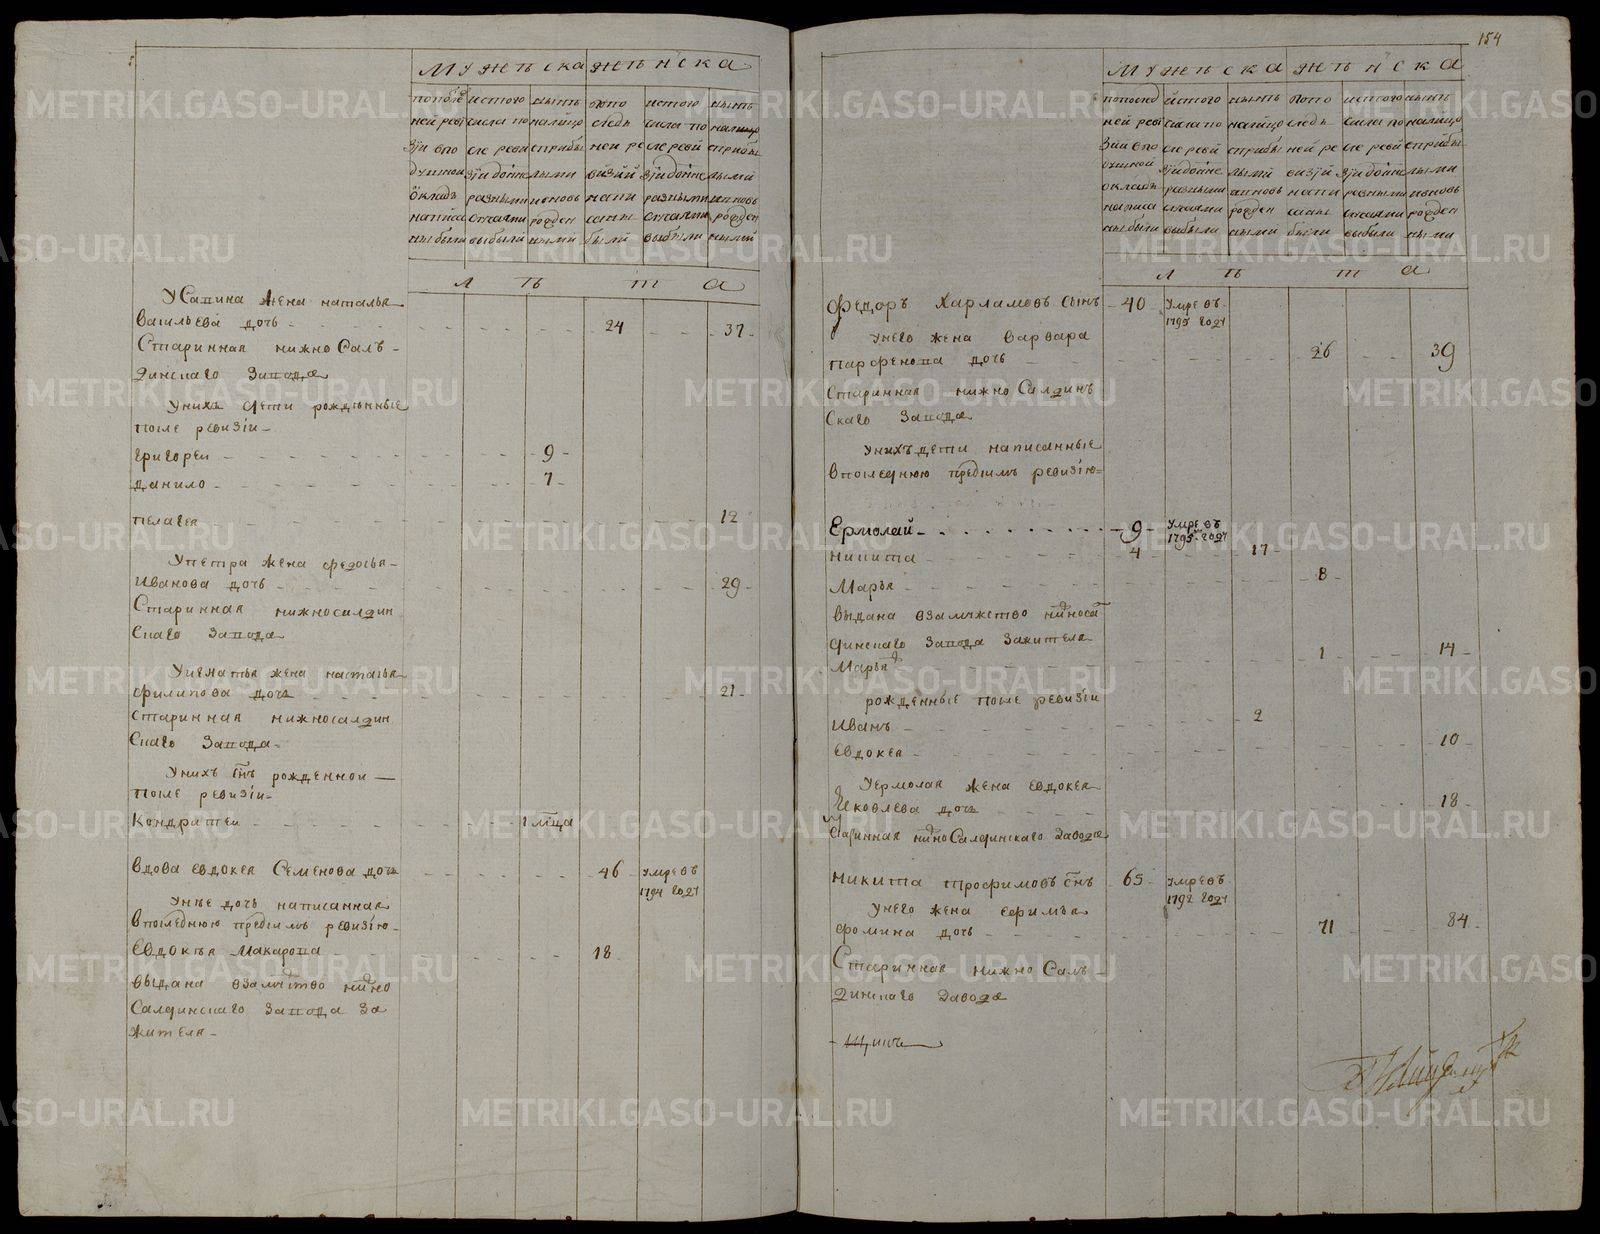 154
Мужеска женска
попослѣд
ней реви
зіи впо
душной
окладъ
написа
ны были
истого
числа по
сле реви
зіи до нне
разными
случаями
выбыли
нынѣ
налицо
сприбы
лыми
и вновь
рожден
ными
попо
следъ
ней ре
визий
напи
саны
были
истого
числа по
сле ревий
зіи до нне
разными
случаями
выбыли
нынѣ
налицо
сприбы
лыми
и вновь
рожден
ными
лѣта
У Сапина жена наталья
Васильева дочь 24 37
Старинная нижно Салъ
динскаго Завода
Унихъ дети рожденные
После ревизіи
Григореи 9
Данило 7
Пелагея 12
Упетра жена федосья
Иванова дочь 29
Старинная нижносалдин
Скаго Завода
Уигнатья жена настасья
филипова дочь 21
Старинная нижносалдин
Скаго Завода
Унихъ снъ рожденнои
После ревизіи
Кондратеи 1 мца
Вдова евдокея Семенова дочь 46 умре въ 1794 году
Унее дочь написанная
Впоследнюю предъ симъ ревизію
Евдокѣя Макарова 18
Выдана взамужство нижно
Салдинскаго Завода За
жителя
Мужеска женска
попослед
ней реви
зіи впо
душной
окладъ
написа
ны были
истого
числа по
сле ревий
зіи до нне
разными
случаями
выбыли
нынѣ
налицо
сприбы
лыми
и вновь
рожден
ными
попо
следъ
ней ре
визій
напи
саны
были
истого
числа по
сле ревий
зіи до нне
разными
случаями
выбыли
нынѣ
налицо
сприбы
лыми
и вновь
рожден
ными
лѣта
Федоръ Харламовъ сынъ 40 умре въ 1795 году
Унего жена варвара
Парфенова дочь 26 39
Старинная нижно Салдинъ
Скаго Завода
Унихъ дети написанные
Впоследнюю предъ симъ ревизію
Ермолай 9 умре въ 1795м году
Никита 4 17
Марья 8
Выдана взамужство нижноса
динскаго Завода За жителя
Марья 1 14
рожденные после ревизіи
Иванъ 2
Евдокея 10
Уермолая жена евдокея
Яковлева дочь 18
Старинная нижно Салдинскаго Завода
Никита трофимовъ снъ 65 умре въ 1792 году
Унего жена ефимья
фомина дочь 71 84
Старинная нижно Салъ
динскаго Завода
METRIKI.GASO-URAL.RU